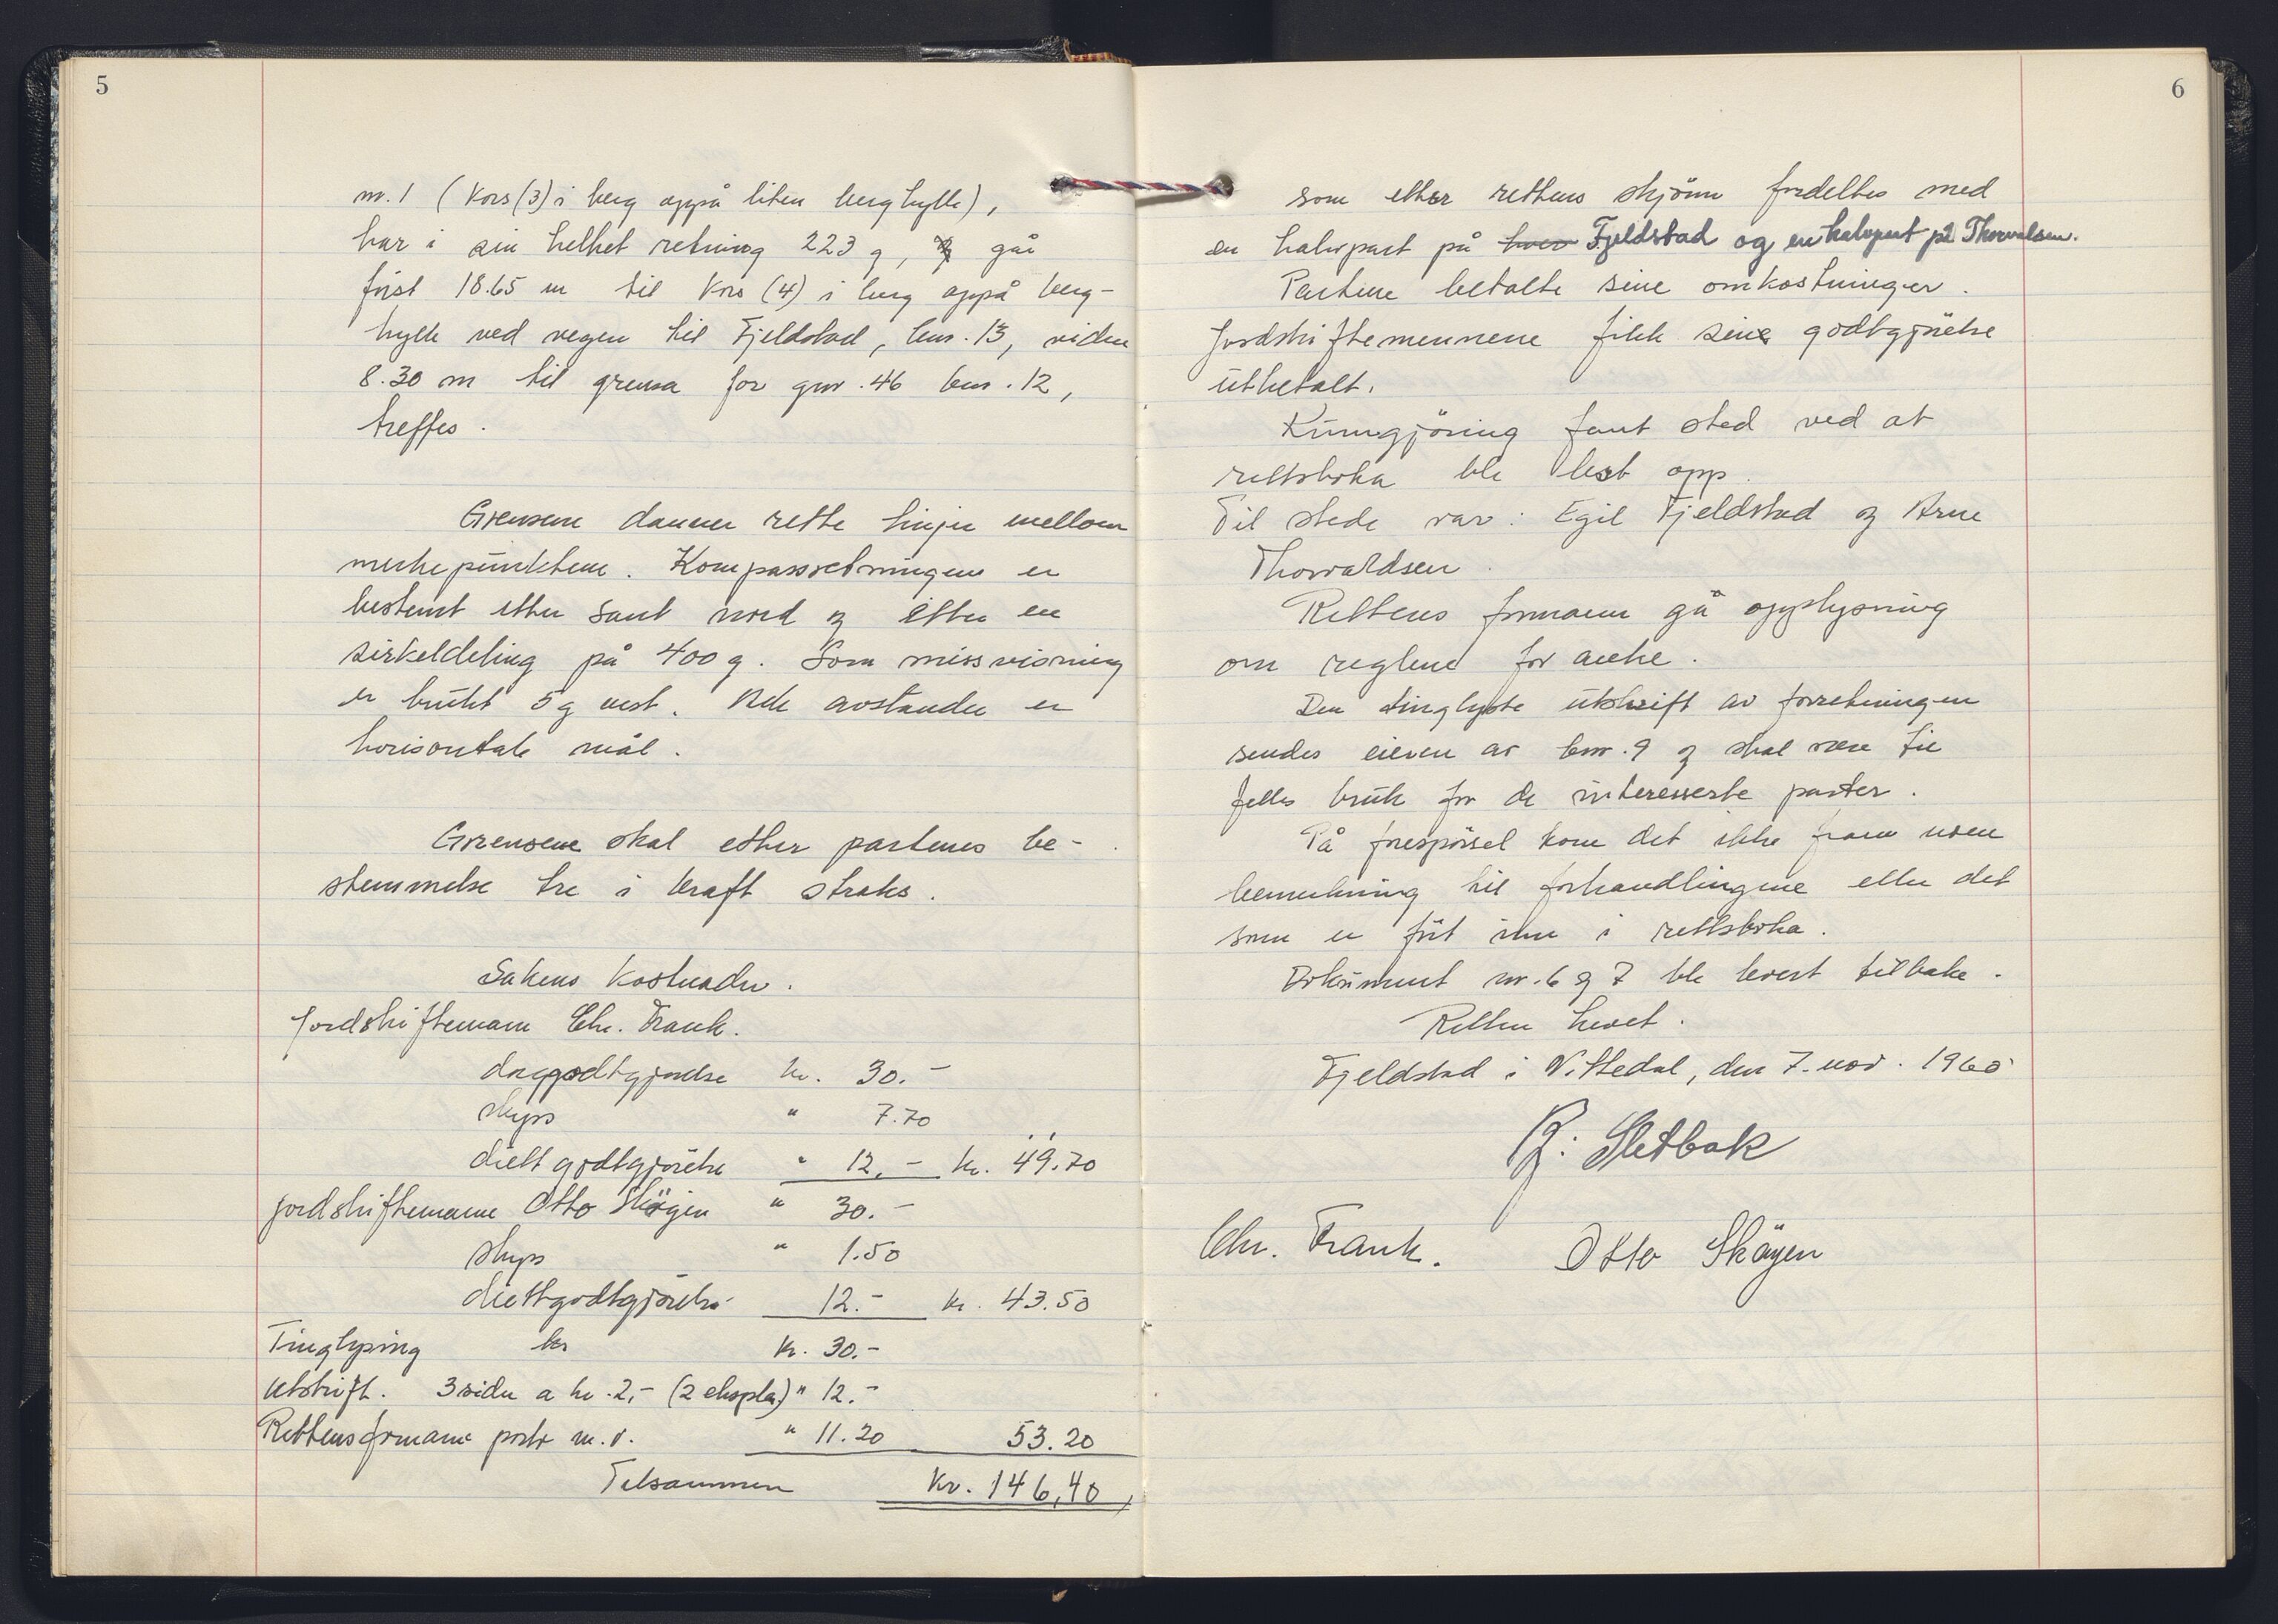 5
nr. 1 (Kors (3) i berg oppå liten berghylle),
har i sin helhet retning 223 g, går
først 18.65 m til Kors (4) i berg oppå berg-
hylle ved vegen til Fjeldstad, bnr. 13, viden
8.30 m til grensa for gnr. 46 bnr. 12,
treffes.
Grensene danner rette linjer mellom
merkepunktene. Kompassretningene er
bestemt etter sant nord og etter en
sirkeldeling på 400 g. Som missvisning
er brukt 5 g vest. Alle avstander er
horisontale mål.
Grensene skal etter partenes be-
stemmelse tre i kraft straks.
Sakens kostnader.
Jordskiftemann Chr. Frank.
daggodtgjørelse kr. 30.-
skyss " 7.70
diettgodtgjørelse " 12.- kr. 49.70
jordskiftemann Otto Skøyen " 30.-
skyss " 1.50
diettgodtgjørelse 12.- kr. 43.50
Tinglysing kr kr. 30.-
Utskrift. 3 sider a kr. 2,- (2 ekspla.) " 12.-
Rettensformann porto m.v. " 11.20 53.20
Tilsammen kr. 146,40
6
som etter rettens skjönn fordeltes med
en halvpart på hver Fjeldstad og en halvpart på Thorvaldsen.
Partene betalte sine omkostninger.
Jordskiftemennene fikk sine godtgjörelse
utbetalt.
Kunngjöring fant sted ved at
rettsboka ble lest opp.
Til stede var: Egil Fjeldstad og Arne
Thorvaldsen.
Rettens formann ga opplysning
om reglene for anke.
Den tinglyste utskrift av forretningen
sendes eieren av bnr. 9 og skal være til
felles bruk for de interesserte parter.
På forespörsel kom det ikke fram noen
bemerkning til forhandlingene eller det
som er fört inn i rettsboka.
Dokument nr. 6 og 7 ble levert tilbake.
Retten hevet.
Fjeldstad i Nittedal, den 7. nov. 1960
R. Sletbak
Chr. Frank. Otto Skøyen